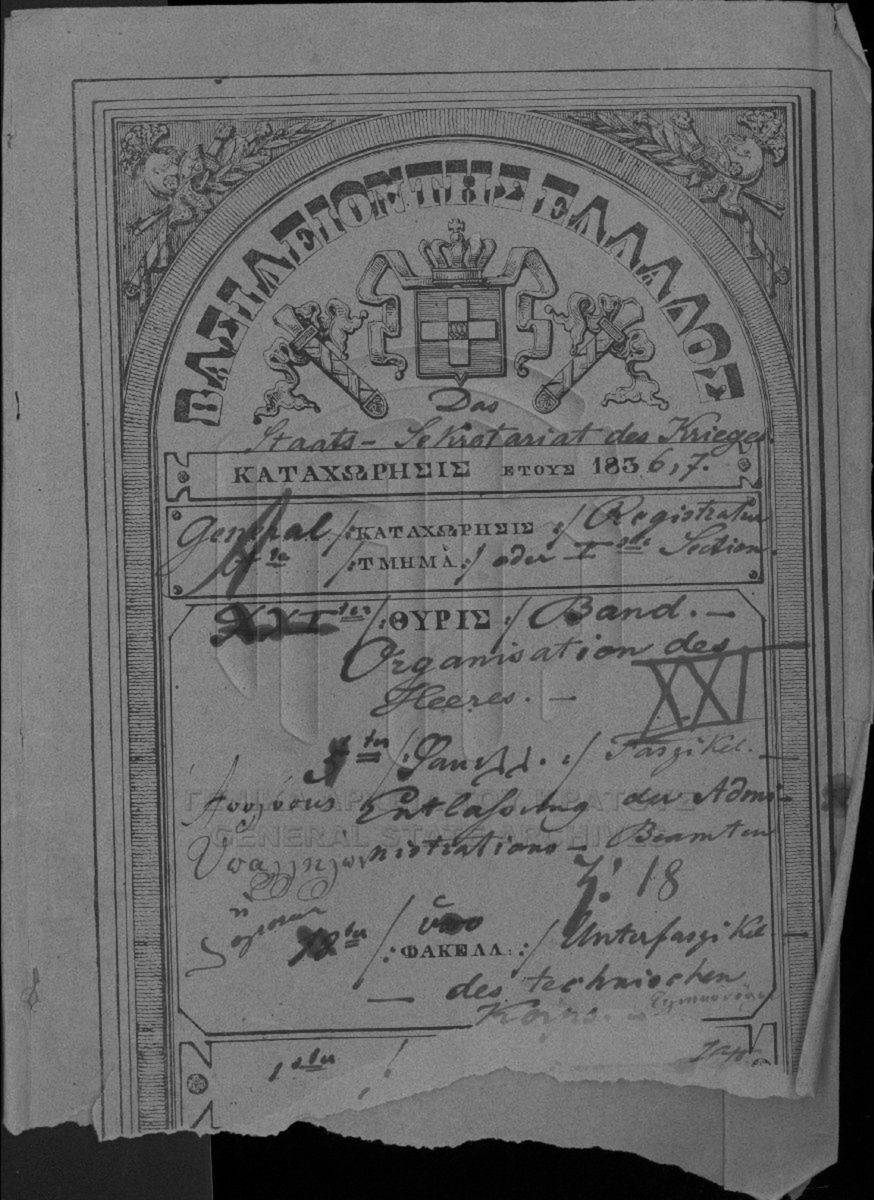 ΒΑΣΙΛΕΙΟΝ ΤΗΣ ΕΛΛΑΔΟΣ
Das
Staats-Sekretariat des Krieges.
ΚΑΤΑΧΩΡΗΣΙΣ ΕΤΟΥΣ 1836,7.
General /:ΚΑΤΑΧΩΡΗΣΙΣ:/ Registratur
/:ΤΜΗΜΑ:/ oder I Section.
XXI ter /:ΘΥΡΙΣ:/ Band. —
Organisation des
Heeres. —
XXI
ter /:Φακελλ.:/ Faszikel. —
Entlaßung der Admi-
Ὑπαλλήλων nistrations-Beamten
18
ter /:ΦΑΚΕΛΛ.:/ Unterfaszikel —
ὑπο
— des technischen
Korps.
1 ster
ΓΕΝΙΚΑ ΑΡΧΕΙΑ ΤΟΥ ΚΡΑΤΟΥΣ
GENERAL STATE ARCHIVES